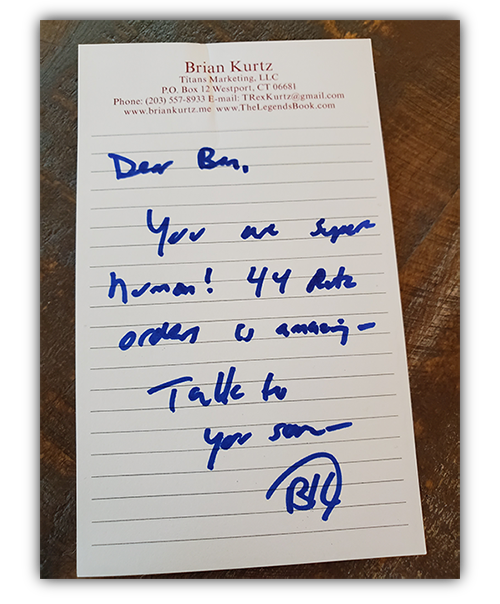 Brian Kurtz
Titans Marketing, LLC
P.O. Box 12 Westport, CT 06681
Phone: (203) 557-8933 E-mail: TRexKurtz@gmail.com
www.briankurtz.me www.TheLegendsBook.com
Dear Ben,
You are super
human! 44 Rutz
orders is amazing—
Talk to
you soon—
BK